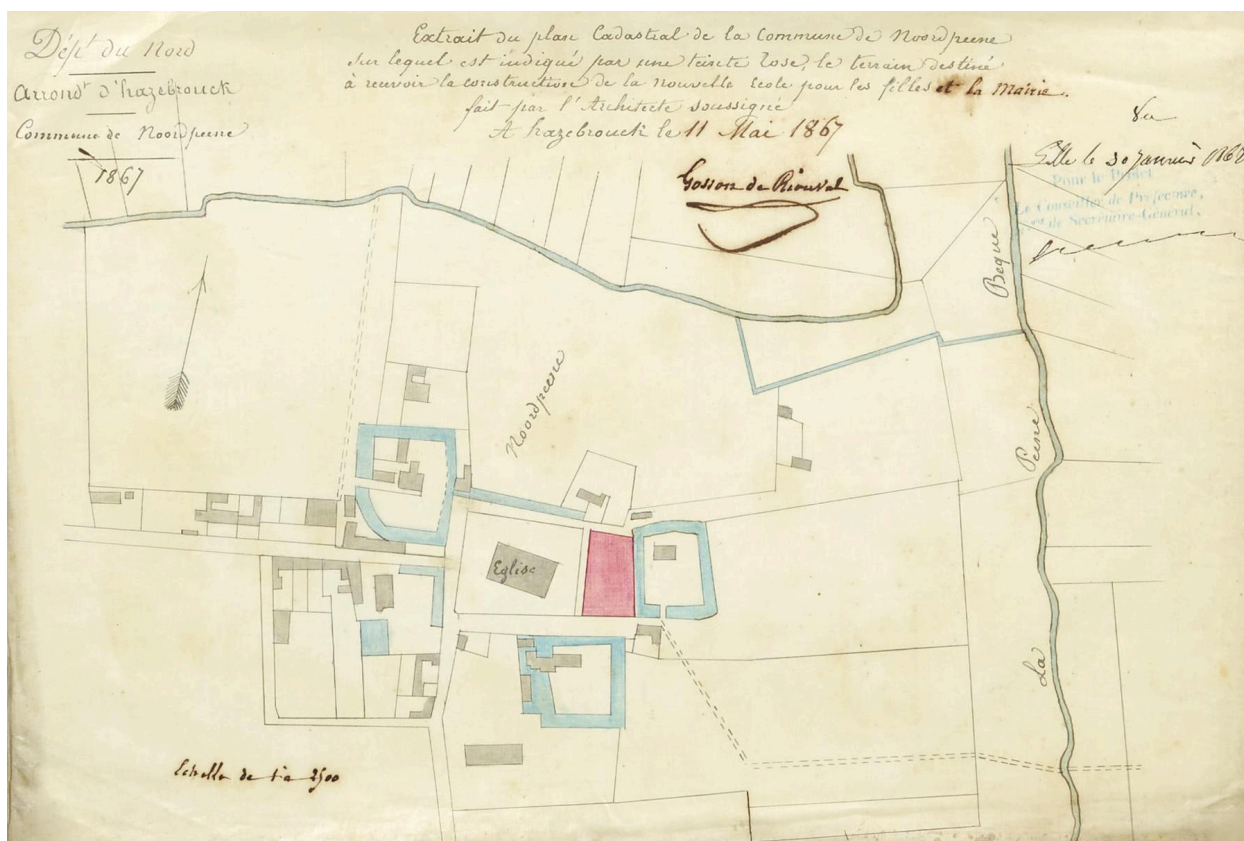 Dépt du Nord
Arrondt d'hazebrouck
Commune de Noordpeene
1867
Extrait du plan Cadastral de la Commune de Noordpeene
sur lequel est indiqué par une teinte rose, le terrain destiné
à recevoir la construction de la nouvelle école pour les filles et la Mairie.
fait par l'Architecte soussigné
A hazebrouck le 11 Mai 1867
Vu
Lille le 30 Janvier
Pour le Préfet
Le Conseiller de Préfecture,
de Secrétaire-Général,
Beque
Noordpeene
Peene
Eglise
La
Echelle de 1 à 2500